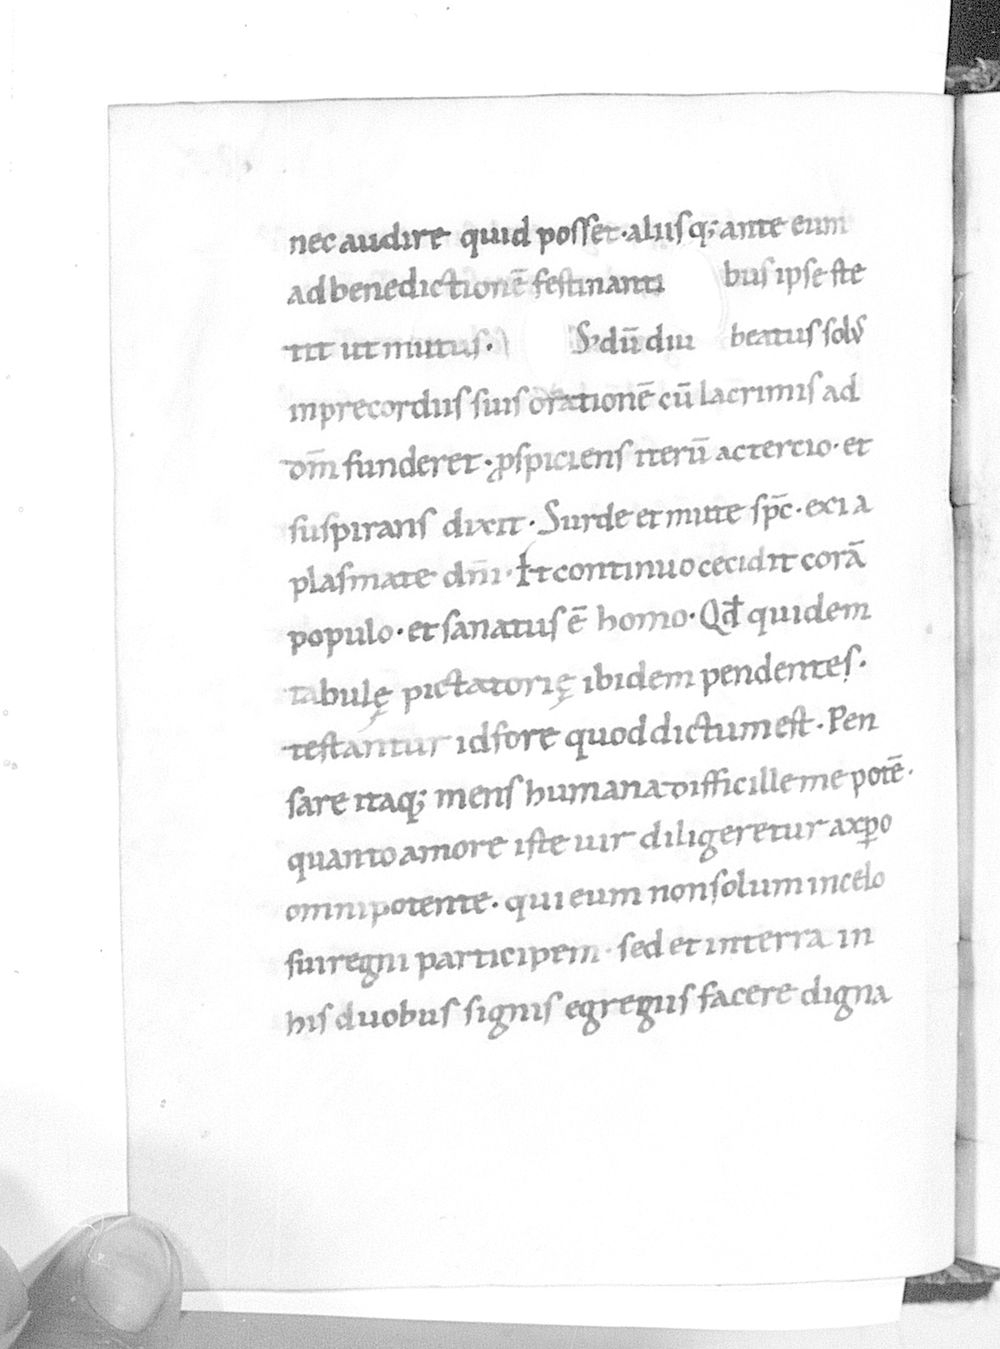 nec audire quid posset · aliisq; ante eum
ad benedictionē festinanti bus ipse ste
tit ut mutus · S; dū diu beatus solus
in precordiis suis orationē cū lacrimis ad
dm̄ funderet · p̱spiciens iterū ac tertio · et
suspirans dixit · Surde et mute sp̄c · exi a
plasmate dn̄i · Et continuo cecidit corā
populo · et sanatus ē homo · Qđ quidem
tabulę pictatorię ibidem pendentes ·
testantur id fore quod dictum est · Pen
sare itaq; mens humana difficillem e potē ·
quanto amore iste uir diligeretur a xp̄o
omnipotente · qui eum non solum in celo
sui regni participem · sed et in terra in
his duobus signis egregiis facere digna